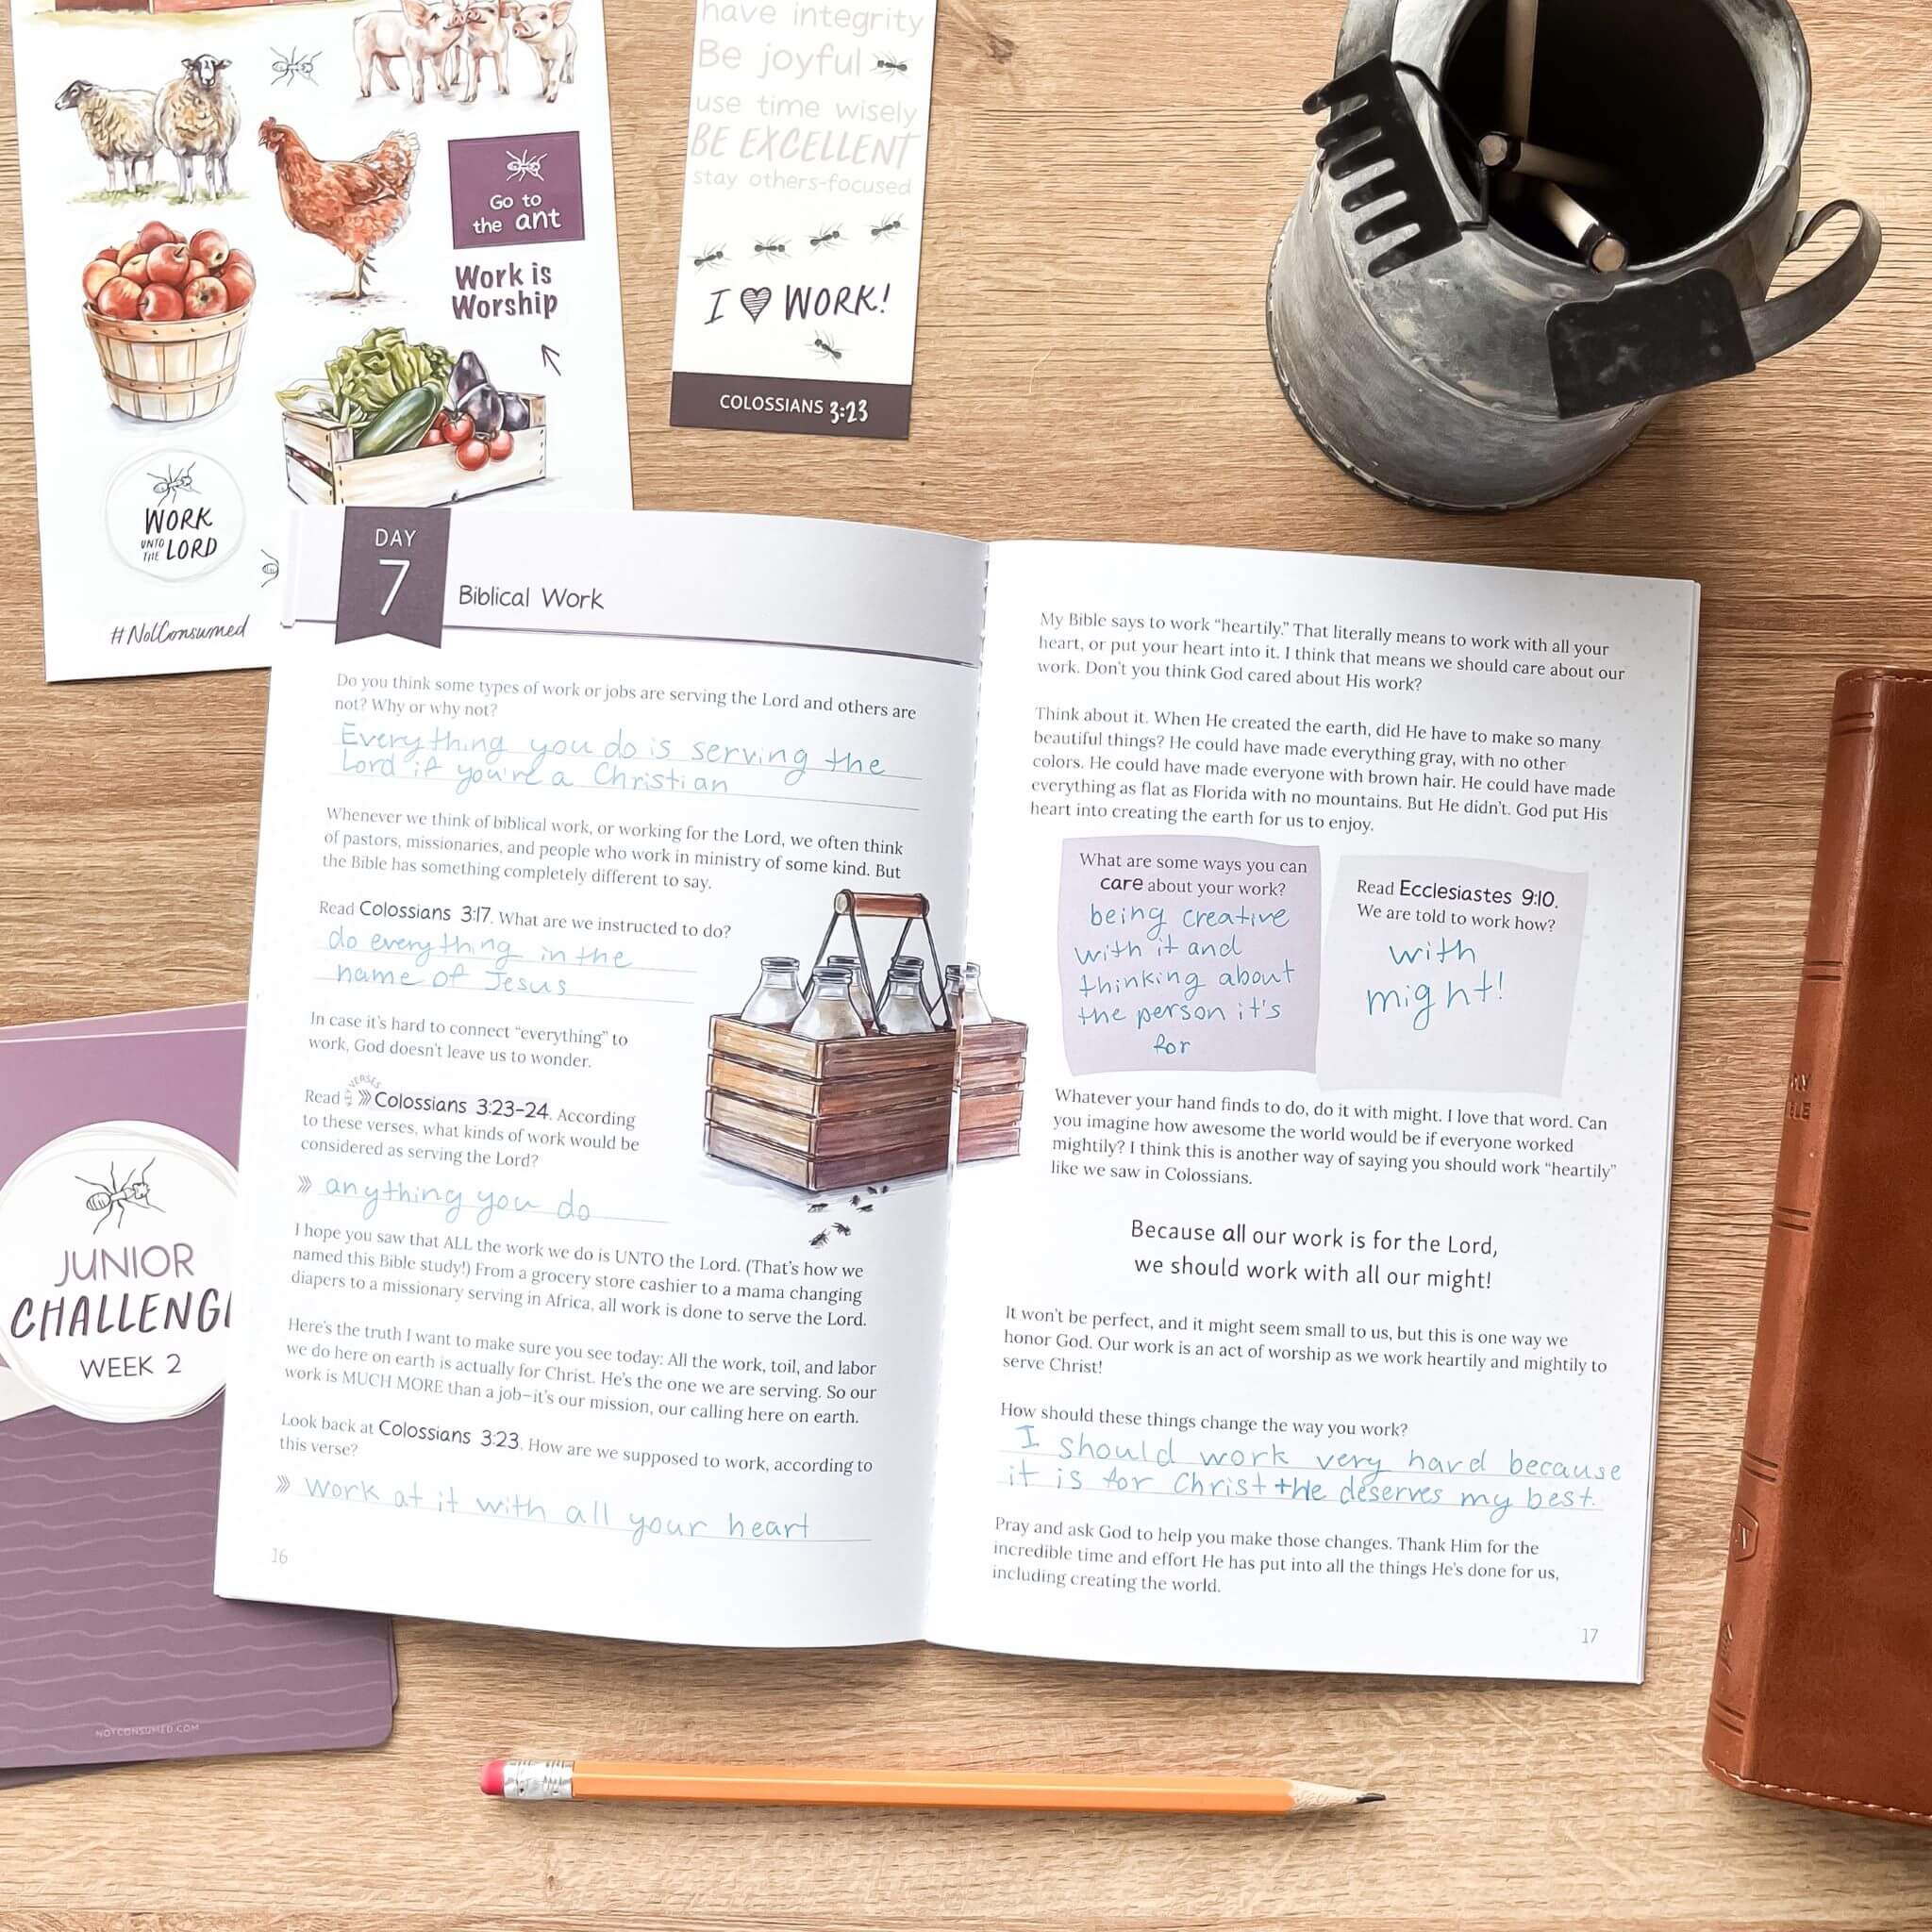 Go to
the ant
Work is
Worship
WORK
UNTO
THE LORD
#NotConsumed
have integrity
Be joyful
use time wisely
BE EXCELLENT
stay others-focused
I ♥ WORK!
COLOSSIANS 3:23
DAY
7
Biblical Work
Do you think some types of work or jobs are serving the Lord and others are
not? Why or why not?
Everything you do is serving the
Lord if you're a Christian
Whenever we think of biblical work, or working for the Lord, we often think
of pastors, missionaries, and people who work in ministry of some kind. But
the Bible has something completely different to say.
Read Colossians 3:17. What are we instructed to do?
do everything in the
name of Jesus
In case it's hard to connect “everything” to
work, God doesn't leave us to wonder.
VERSES
Read Colossians 3:23-24. According
to these verses, what kinds of work would be
considered as serving the Lord?
anything you do
I hope you saw that ALL the work we do is UNTO the Lord. (That's how we
named this Bible study!) From a grocery store cashier to a mama changing
diapers to a missionary serving in Africa, all work is done to serve the Lord.
Here's the truth I want to make sure you see today: All the work, toil, and labor
we do here on earth is actually for Christ. He's the one we are serving. So our
work is MUCH MORE than a job—it's our mission, our calling here on earth.
Look back at Colossians 3:23. How are we supposed to work, according to
this verse?
work at it with all your heart
16
My Bible says to work “heartily.” That literally means to work with all your
heart, or put your heart into it. I think that means we should care about our
work. Don't you think God cared about His work?
Think about it. When He created the earth, did He have to make so many
beautiful things? He could have made everything gray, with no other
colors. He could have made everyone with brown hair. He could have made
everything as flat as Florida with no mountains. But He didn't. God put His
heart into creating the earth for us to enjoy.
What are some ways you can
care about your work?
being creative
with it and
thinking about
the person it's
for
Read Ecclesiastes 9:10.
We are told to work how?
with
might!
Whatever your hand finds to do, do it with might. I love that word. Can
you imagine how awesome the world would be if everyone worked
mightily? I think this is another way of saying you should work “heartily”
like we saw in Colossians.
Because all our work is for the Lord,
we should work with all our might!
It won't be perfect, and it might seem small to us, but this is one way we
honor God. Our work is an act of worship as we work heartily and mightily to
serve Christ!
How should these things change the way you work?
I should work very hard because
it is for Christ + He deserves my best.
Pray and ask God to help you make those changes. Thank Him for the
incredible time and effort He has put into all the things He's done for us,
including creating the world.
17
JUNIOR
CHALLENGE
WEEK 2
NOTCONSUMED.COM